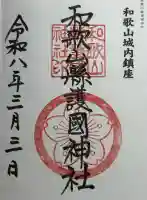 和歌山城内鎮座
和歌山縣護國神社
令和八年三月三一日